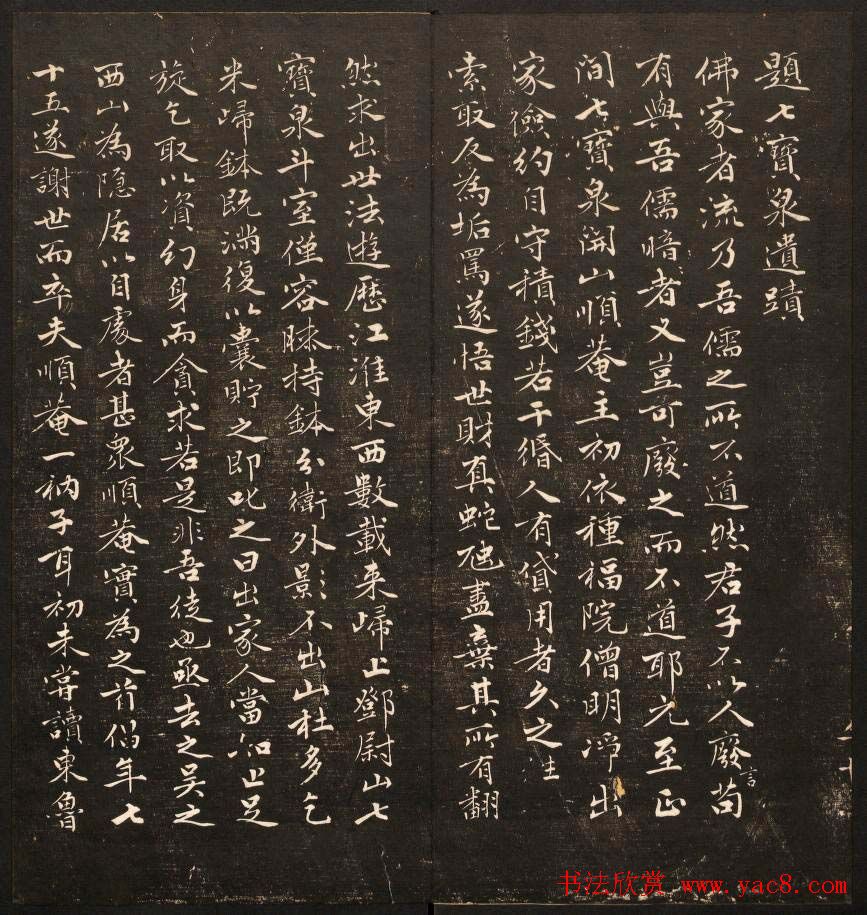 題七寶泉遺蹟
佛家者流乃吾儒之所不道然君子不以人廢言苟
有與吾儒暗者又豈可廢之而不道耶元至正
間七寶泉開山順菴主初依種福院僧明淨出
家儉約自守積錢若干緡人有貸用者久之往
索取反為垢罵遂悟世財真蛇虺盡棄其所有翻
然求出世法遊歷江淮東西數載來歸上鄧尉山七
寶泉斗室僅容膝持鉢分衛外影不出山杜多乞
米歸鉢既滿復以囊貯之即叱之曰出家人當知止足
旋乞取以資幻身而貪求若是非吾徒也亟去之吳之
西山為隱居以自處者甚衆順菴實為之首倡年七
十五遂謝世而卒夫順菴一衲子耳初未嘗讀東魯
书法欣赏 www.yac8.com